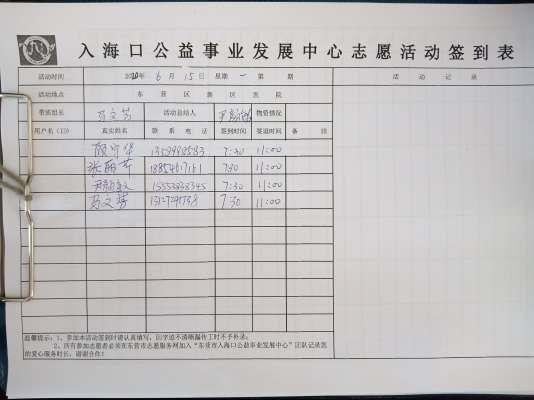 入海口公益事业发展中心志愿活动签到表
活动时间 2020年 6月 15日 星期 一 第 期 活动记录
活动地点 东营区 医院
带班组长 马文芳 活动总结人 物资情况
用户名(ID) 真实姓名 联系电话 签到时间 签退时间 备注
7:30 11:00
张丽芹 18854617161 7:30 11:00
15553838345 7:30 11:00
马文芳 7:30 11:00
温馨提示：1、参加本活动签到时请认真填写，因字迹不清晰漏传工时不予补录。
2、所有参加志愿者必须在东营市志愿服务网加入“东营市入海口公益事业发展中心”团队记录您
的爱心服务时长，谢谢合作！